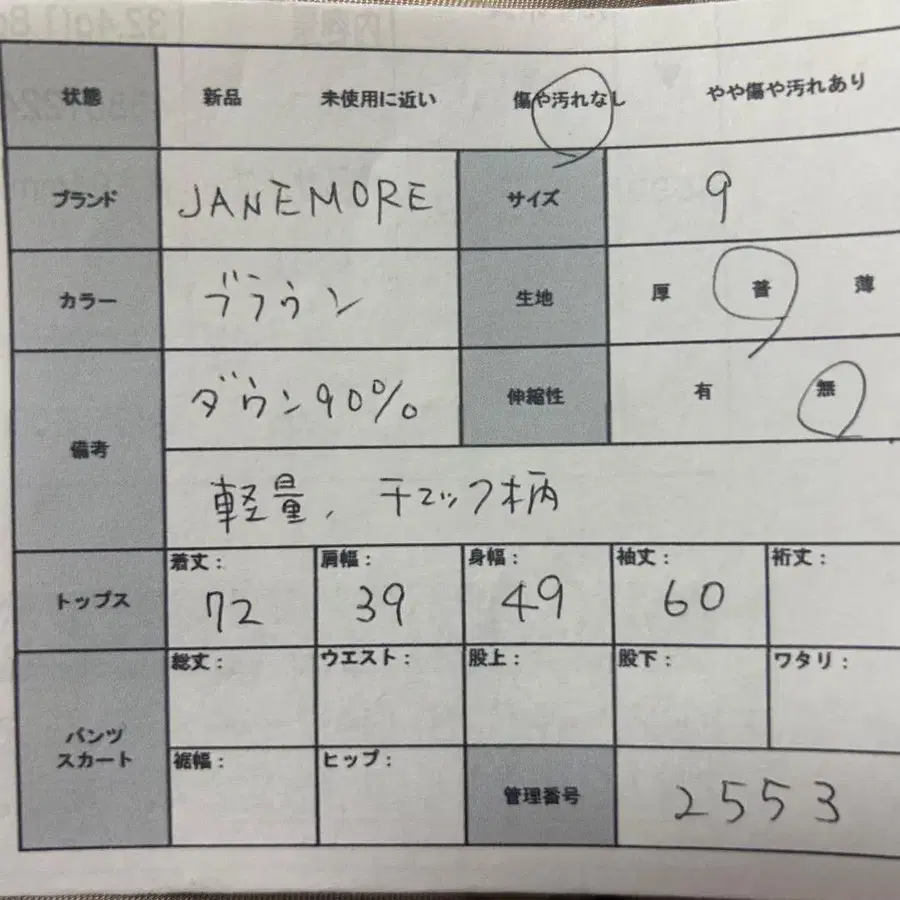 状態 新品 未使用に近い 傷や汚れなし やや傷や汚れあり
ブランド JANEMORE サイズ 9
カラー ブラウン 生地 厚 普 薄
備考 ダウン90% 伸縮性 有 無
軽量、チェック柄
トップス 着丈: 72 肩幅: 39 身幅: 49 袖丈: 60 裄丈:
パンツ スカート 総丈: ウエスト: 股上: 股下: ワタリ:
裾幅: ヒップ: 管理番号 2553